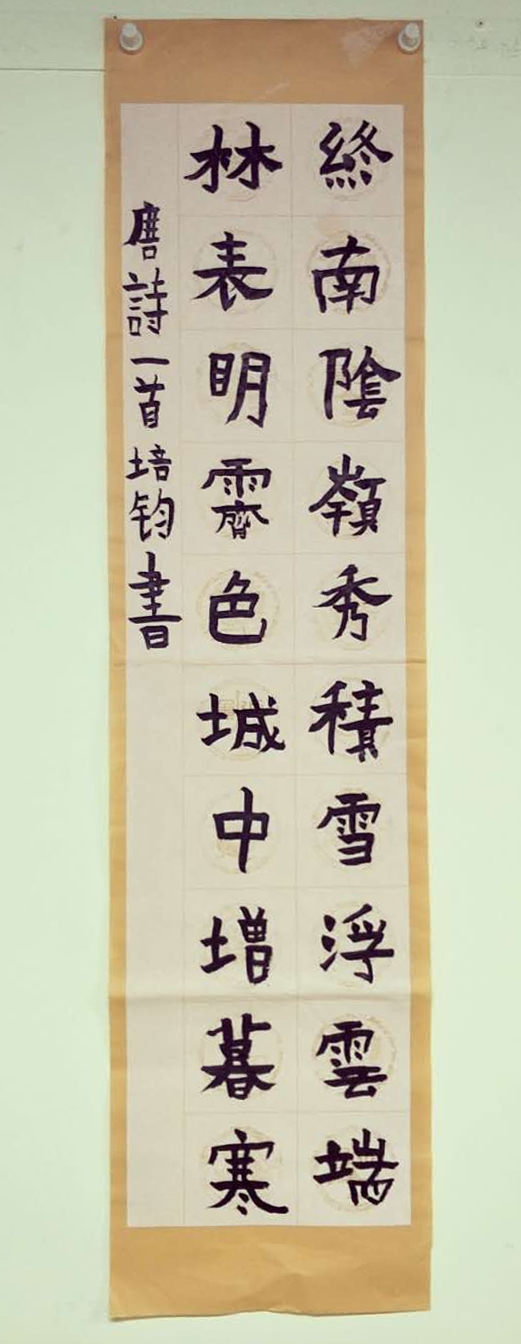 終南陰嶺秀積雪浮雲端
林表明霽色城中增暮寒
唐詩一首培钧書